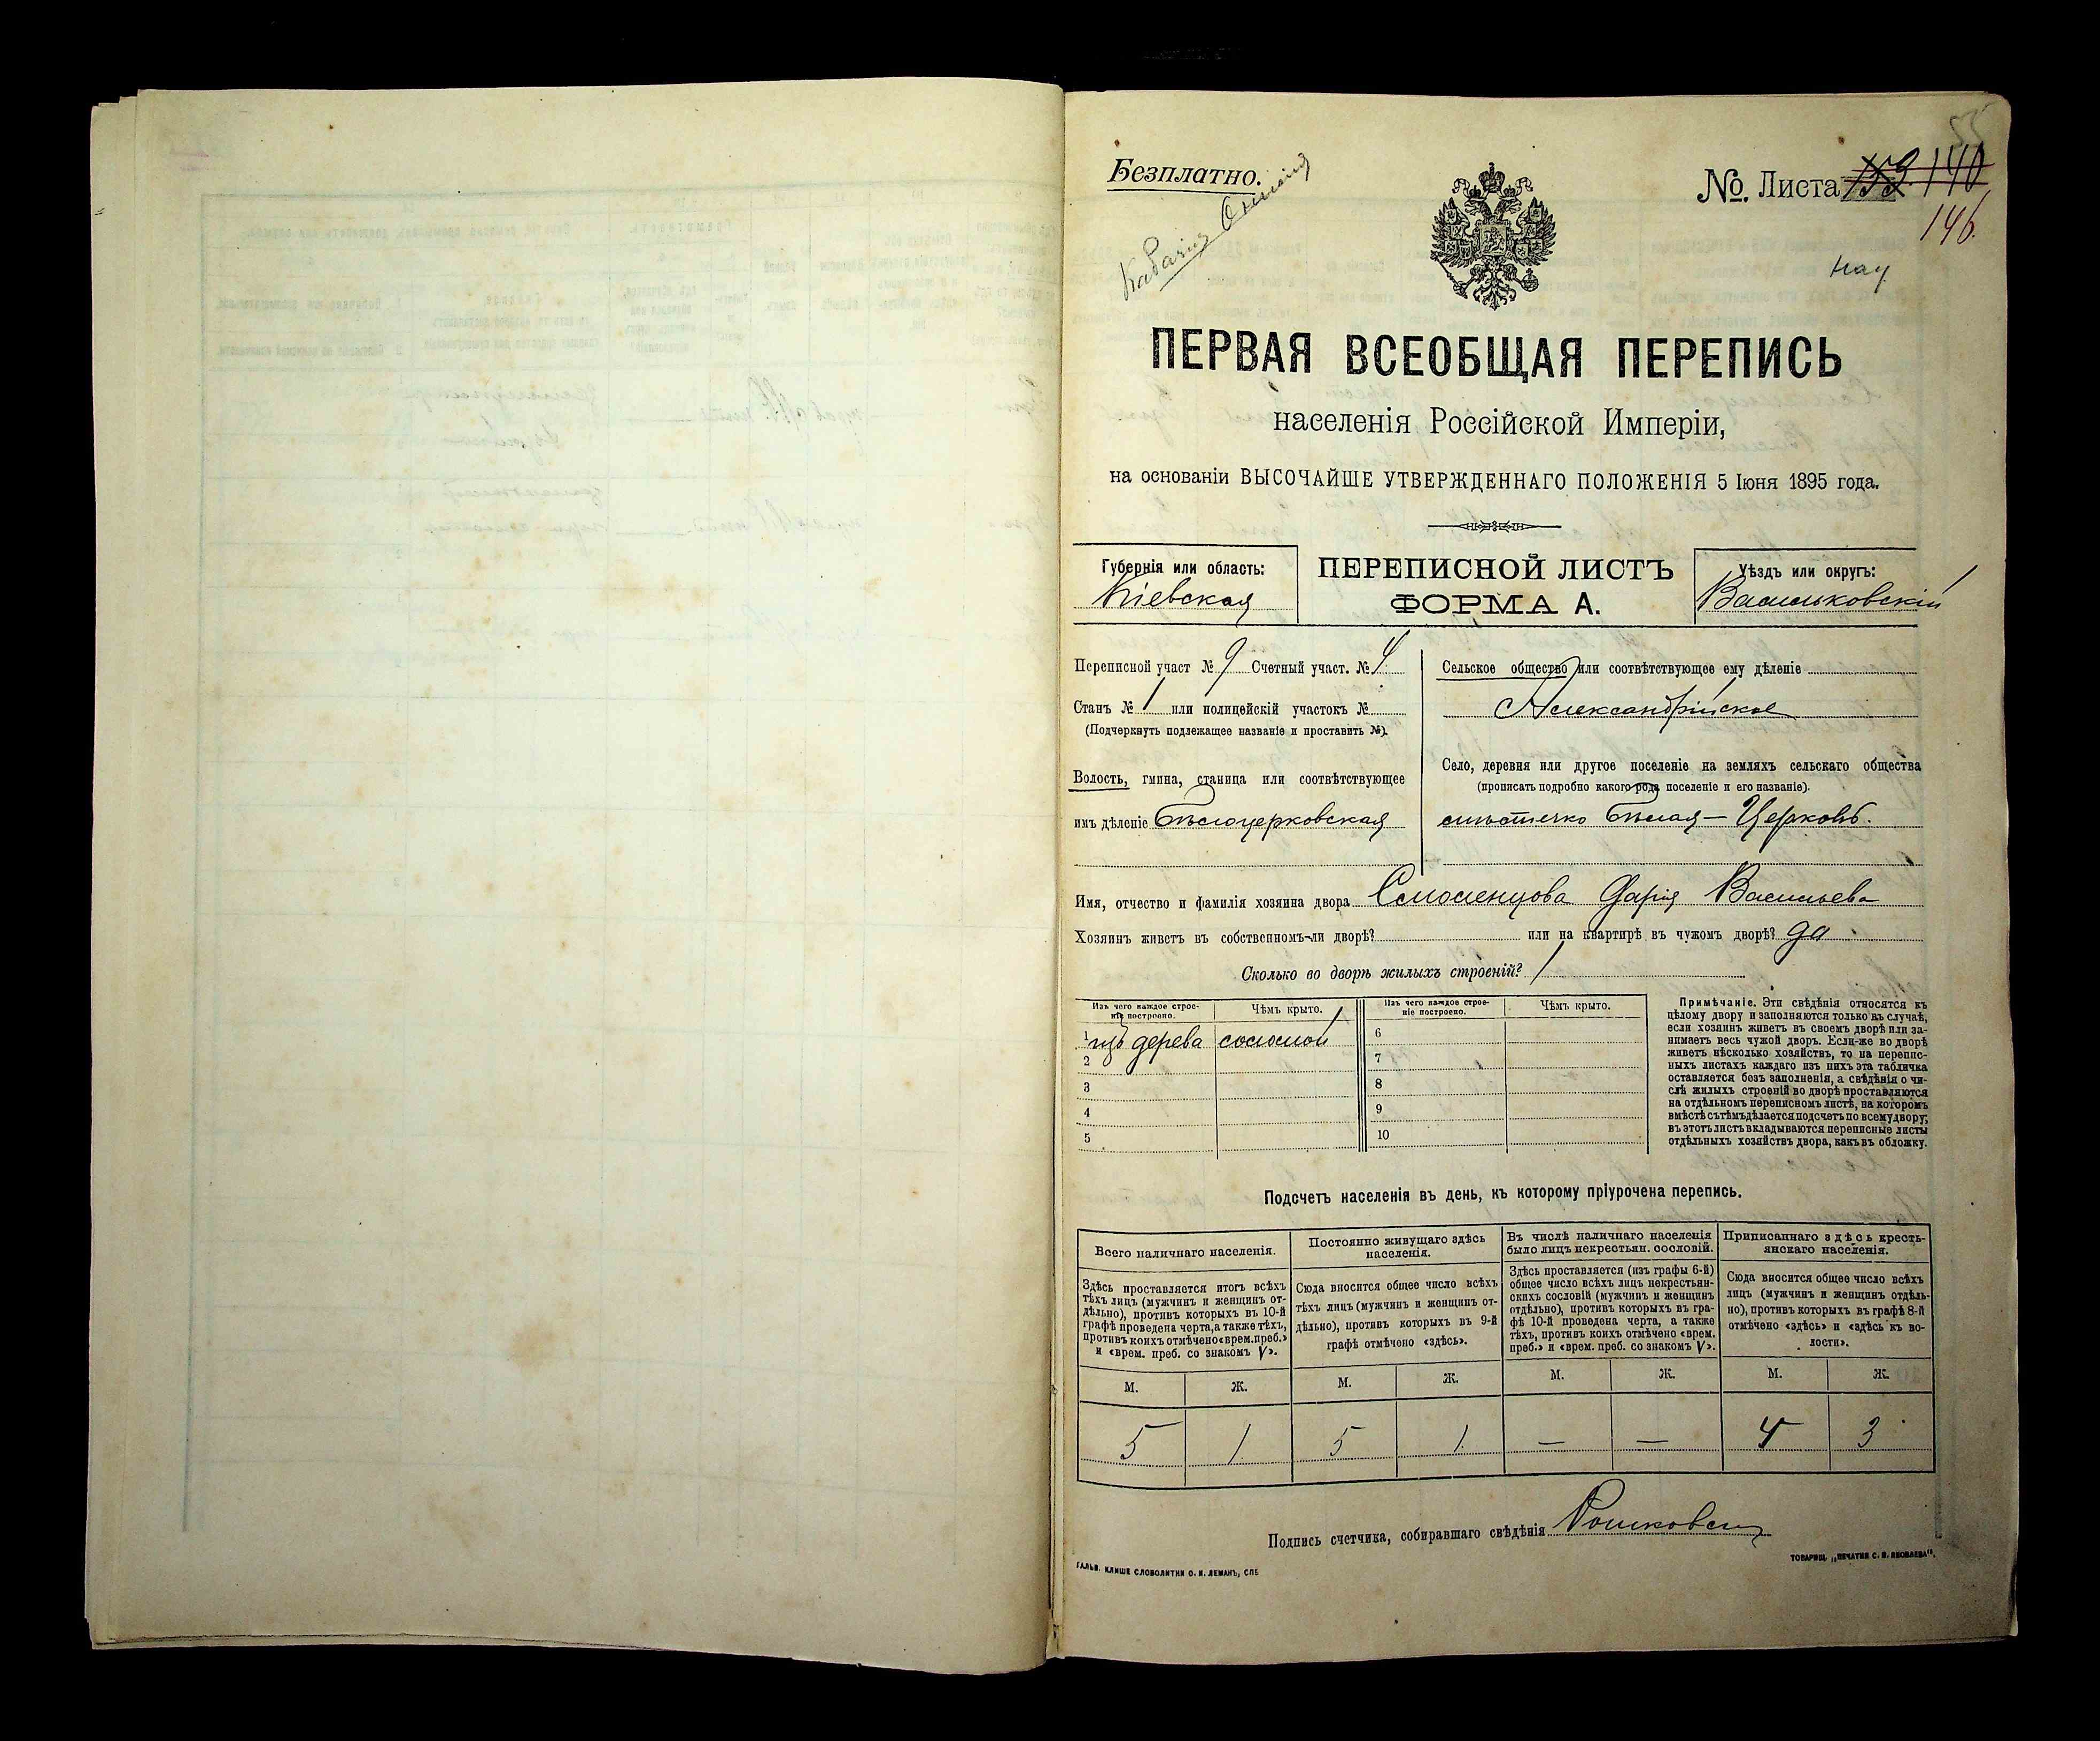 55
Безплатно.
№. Листа 159 140
146.
ПЕРВАЯ ВСЕОБЩАЯ ПЕРЕПИСЬ
населенія Россійской Имперіи,
на основаніи ВЫСОЧАЙШЕ УТВЕРЖДЕННАГО ПОЛОЖЕНІЯ 5 Іюня 1895 года.
Губернія или область:
Кіевская
ПЕРЕПИСНОЙ ЛИСТЪ
ФОРМА А.
Уѣздъ или округъ:
Васильковскій
Переписной участ № 9 Счетный участ. № 4.
Станъ № 1 или полицейскій участокъ №
(Подчеркнуть подлежащее названіе и проставить №).
Волость, гмина, станица или соотвѣтствующее
имъ дѣленіе Бѣлоцерковская
Сельское общество или соотвѣтствующее ему дѣленіе
Александрійское
Село, деревня или другое поселеніе на земляхъ сельскаго общества
(прописать подробно какого рода поселеніе и его названіе).
мѣстечко Бѣлая – Церковь.
Имя, отчество и фамилія хозяина двора Смоленцова Дарія Васильева
Хозяинъ живетъ въ собственномъ-ли дворѣ? или на квартирѣ въ чужомъ дворѣ? да
Сколько во дворѣ жилыхъ строеній? 1
Изъ чего каждое строе-
ніе построено.
Чѣмъ крыто.
Изъ чего каждое строе-
ніе построено.
Чѣмъ крыто.
1 изъ дерева соломой
2
3
4
5
6
7
8
9
10
Примѣчаніе. Эти свѣдѣнія относятся къ
цѣлому двору и заполняются только въ случаѣ,
если хозяинъ живетъ въ своемъ дворѣ или за-
нимаетъ весь чужой дворъ. Если-же во дворѣ
живетъ нѣсколько хозяйствъ, то на перепис-
ныхъ листахъ каждаго изъ нихъ эта табличка
оставляется безъ заполненія, а свѣдѣнія о чи-
слѣ жилыхъ строеній во дворѣ проставляются
на отдѣльномъ переписномъ листѣ, на которомъ
вмѣстѣ съ тѣмъ дѣлается подсчетъ по всему двору;
въ этотъ листъ вкладываются переписные листы
отдѣльныхъ хозяйствъ двора, какъ въ обложку.
Подсчетъ населенія въ день, къ которому пріурочена перепись.
Всего наличнаго населенія.
Здѣсь проставляется итогъ всѣхъ
тѣхъ лицъ (мужчинъ и женщинъ от-
дѣльно), противъ которыхъ въ 10-й
графѣ проведена черта, а также тѣхъ,
противъ коихъ отмѣчено «врем. преб.»
и «врем. преб. со знакомъ V».
Постоянно живущаго здѣсь
населенія.
Сюда вносится общее число всѣхъ
тѣхъ лицъ (мужчинъ и женщинъ от-
дѣльно), противъ которыхъ въ 9-й
графѣ отмѣчено «здѣсь».
Въ числѣ наличнаго населенія
было лицъ некрестьян. сословій.
Здѣсь проставляется (изъ графы 6-й)
общее число всѣхъ лицъ некрестьян-
скихъ сословій (мужчинъ и женщинъ
отдѣльно), противъ которыхъ въ гра-
фѣ 10-й проведена черта, а также
тѣхъ, противъ коихъ отмѣчено «врем.
преб.» и «врем. преб. со знакомъ V».
Приписаннаго здѣсь кресть-
янскаго населенія.
Сюда вносится общее число всѣхъ
лицъ (мужчинъ и женщинъ отдѣль-
но), противъ которыхъ въ графѣ 8-й
отмѣчено «здѣсь» и «здѣсь къ во-
лости».
М. Ж. М. Ж. М. Ж. М. Ж.
5 1 5 1 — — 4 3
Подпись счетчика, собиравшаго свѣдѣнія
ГАЛЬВ. КЛИШЕ СЛОВОЛИТНИ О. И. ЛЕМАНЪ, СПБ
ТОВАРИЩ. „ПЕЧАТНИ С. П. ЯКОВЛЕВА“.